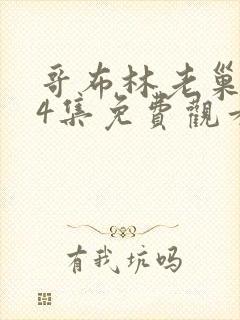 哥布林老巢
4集免費觀看
有我坑吗